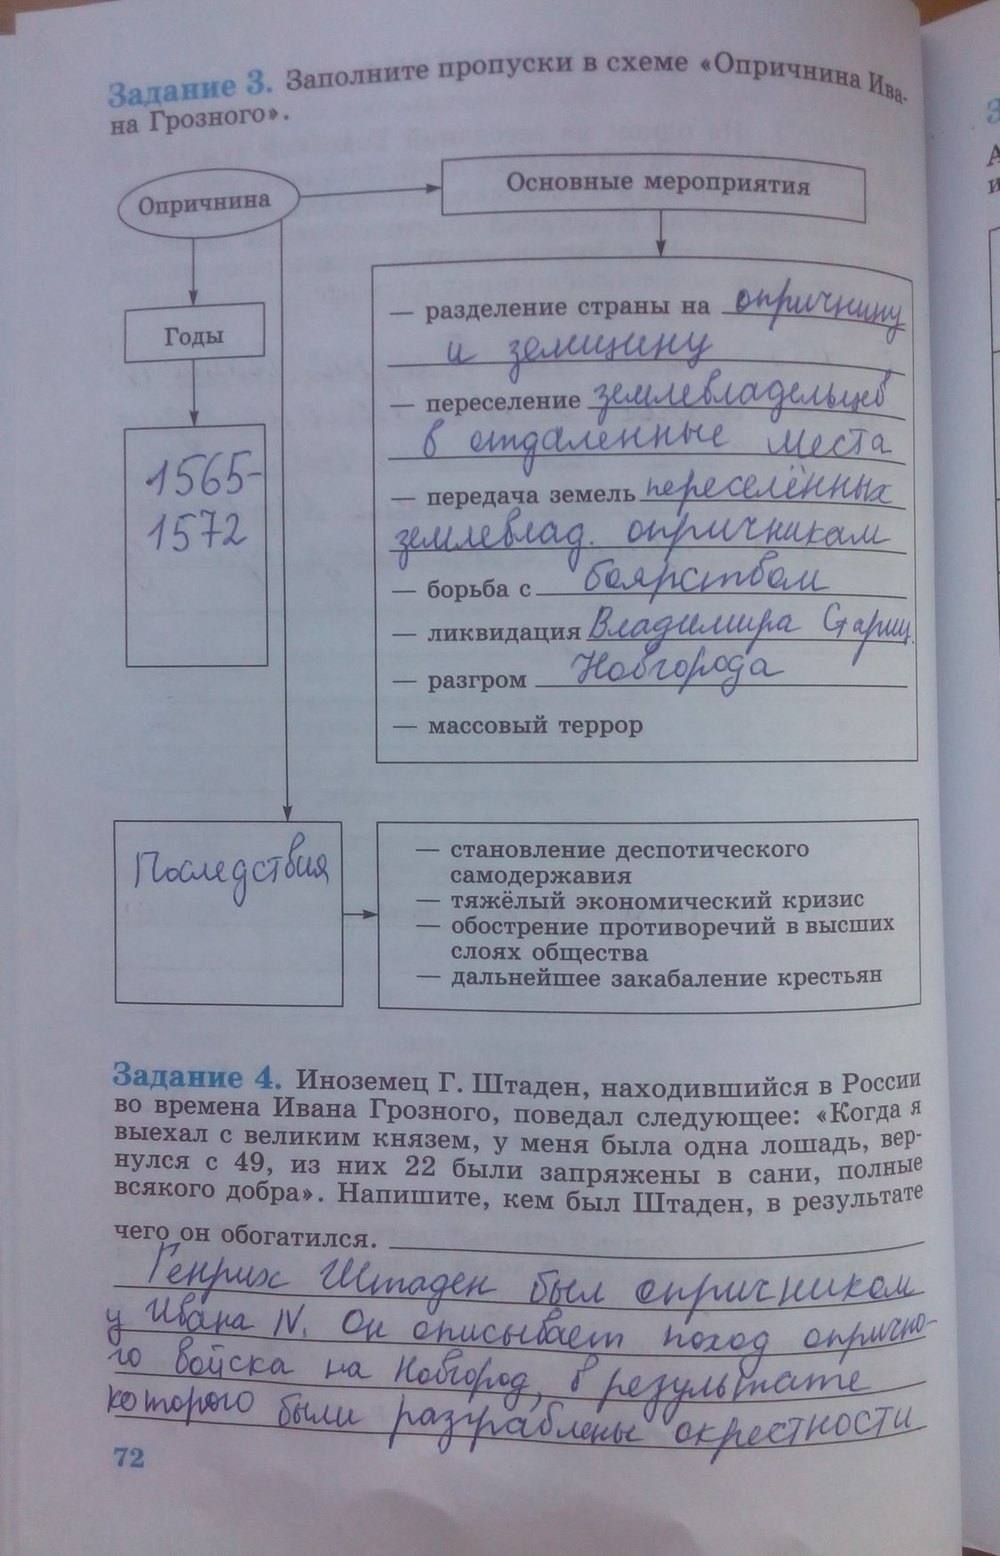 Задание 3. Заполните пропуски в схеме «Опричнина Ива-
на Грозного».
Опричнина
Основные мероприятия
Годы
1565-
1572
— разделение страны на опричнину
и земщину
— переселение землевладельцев
в отдаленные места
— передача земель переселённых
землевлад. опричникам
— борьба с боярством
— ликвидация Владимира Стариц.
— разгром Новгорода
— массовый террор
Последствия
— становление деспотического
самодержавия
— тяжёлый экономический кризис
— обострение противоречий в высших
слоях общества
— дальнейшее закабаление крестьян
Задание 4. Иноземец Г. Штаден, находившийся в России
во времена Ивана Грозного, поведал следующее: «Когда я
выехал с великим князем, у меня была одна лошадь, вер-
нулся с 49, из них 22 были запряжены в сани, полные
всякого добра». Напишите, кем был Штаден, в результате
чего он обогатился.
Генрих Штаден был опричником
у Ивана IV. Он описывает поход опрично-
го войска на Новгород, в результате
которого были разграблены окрестности
72